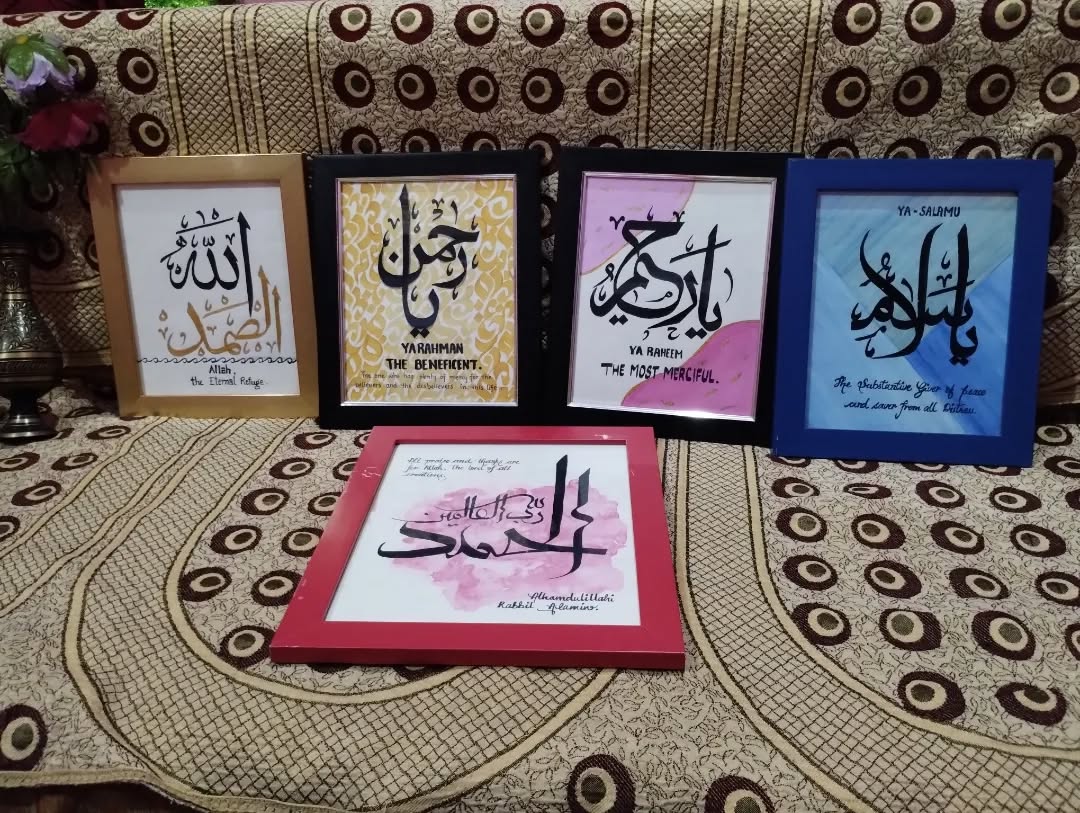 الله
الصمد
Allah,
the Eternal Refuge.
يا رحمن
YA RAHMAN
THE BENEFICENT.
The one who has plenty of mercy for the
believers and the disbelievers in this life
يا رحيم
YA RAHEEM
THE MOST MERCIFUL.
YA - SALAMU
يا سلام
The Substantive Giver of peace
and saver from all Distress.
All praise and thanks are
for Allah. The lord of all
creations.
رب العالمين
الحمد
Alhamdulillahi
Rabbil Alamin.